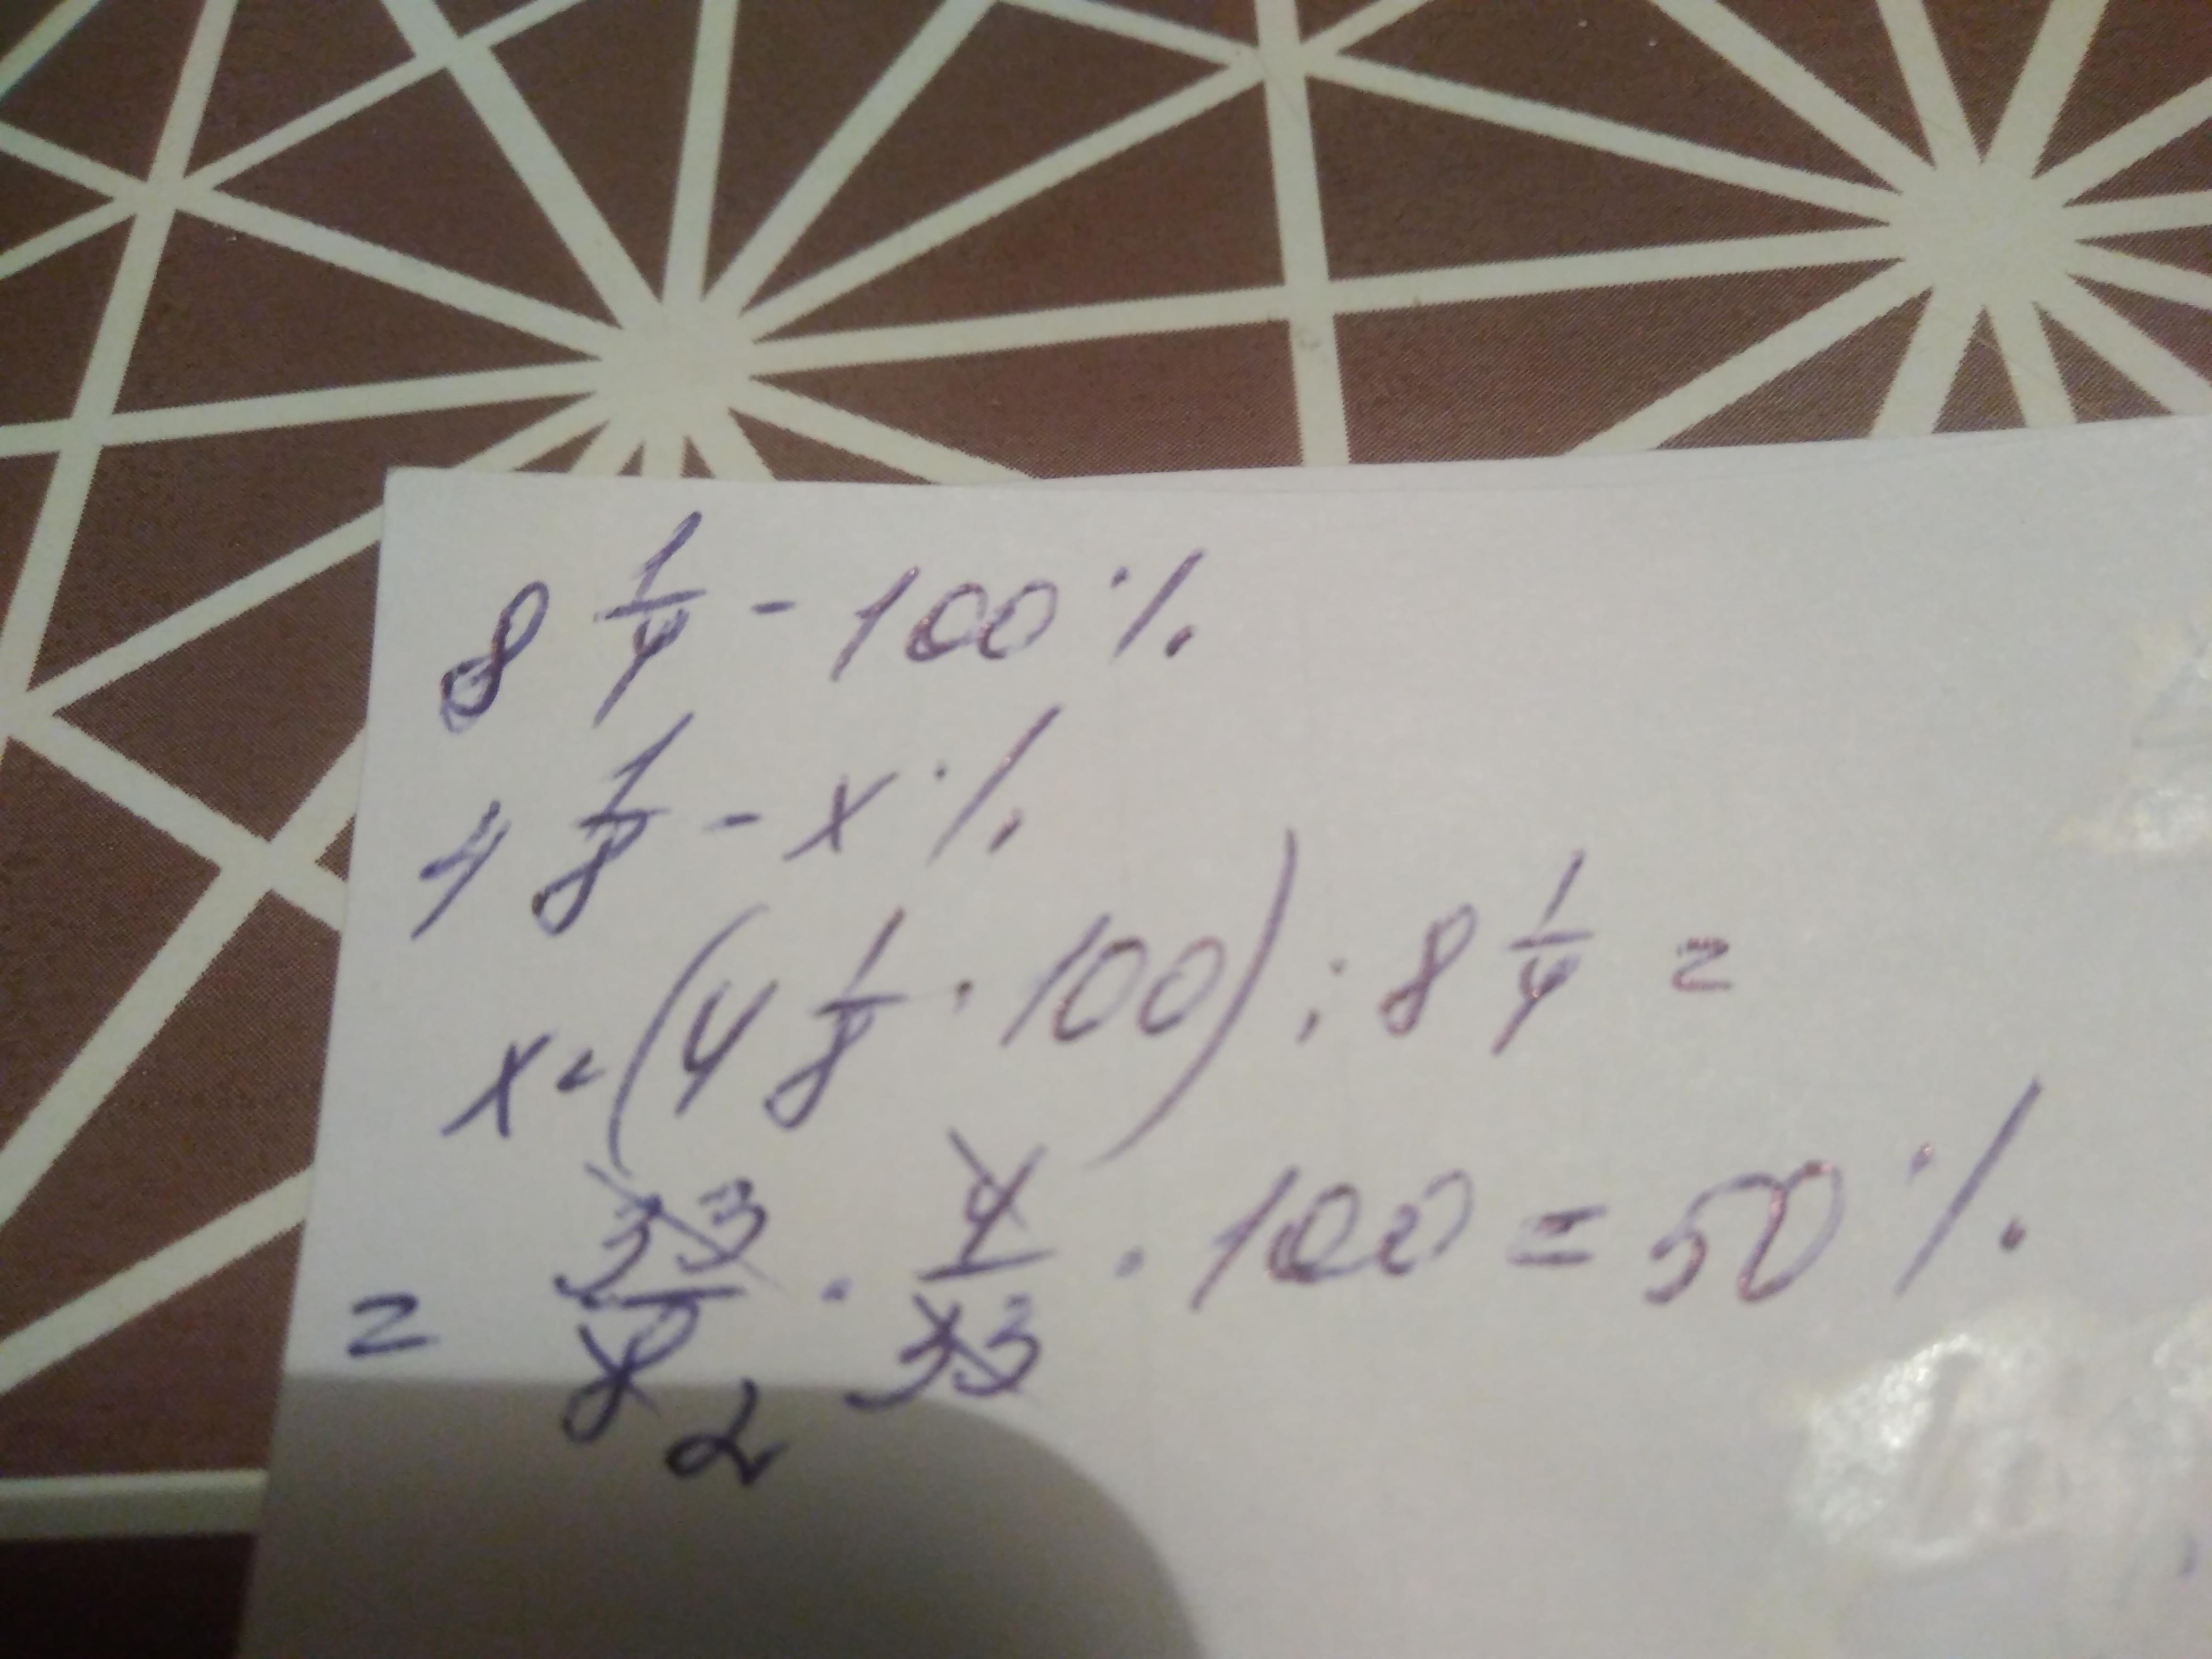 8 1/4 - 100%
4 1/8 - x%
x = (4 1/8 · 100) : 8 1/4 =
= 33/8 2 · 4/33 · 100 = 50%